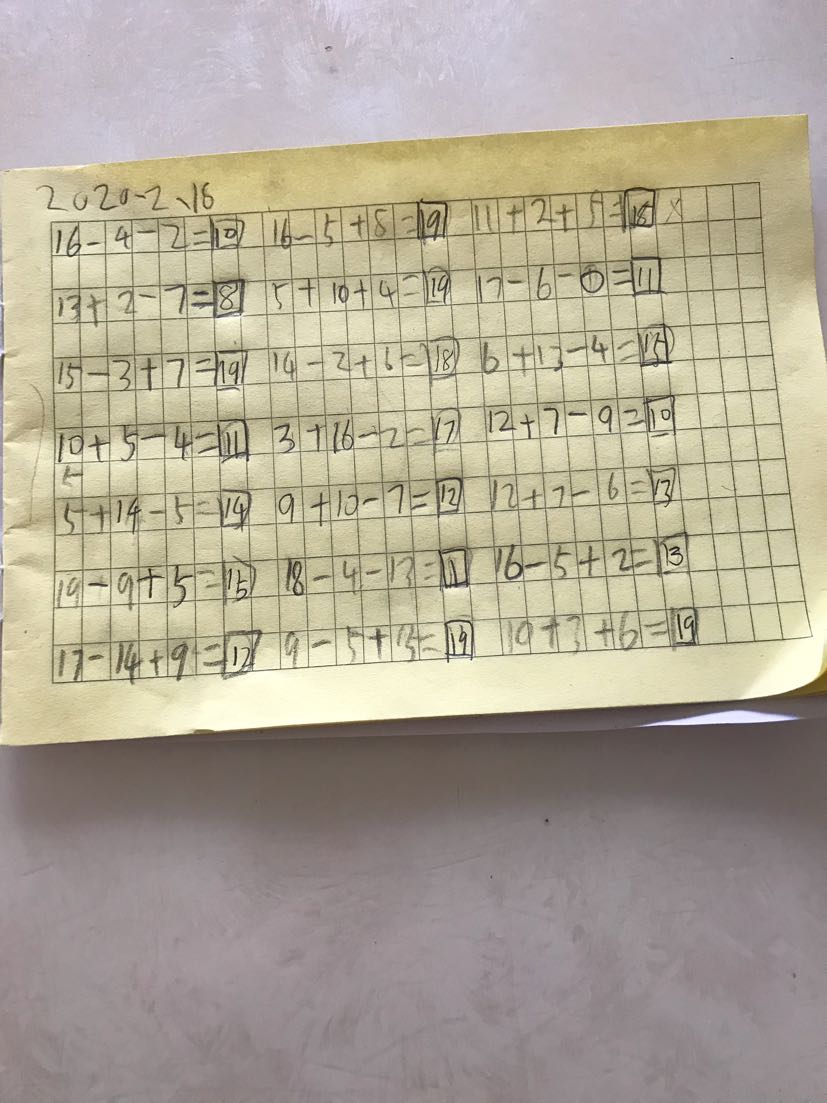 2020-2、18
16-4-2=10 16-5+8=19 11+2+5=18 ×
13+2-7=8 5+10+4=19 17-6-0=11
15-3+7=19 14-2+6=18 6+13-4=15
10+5-4=11 3+16-2=17 12+7-9=10
5+14-5=14 9+10-7=12 12+7-6=13
19-9+5=15 18-4-13=1 16-5+2=13
17-14+9=12 9-5+15=19 10+3+6=19